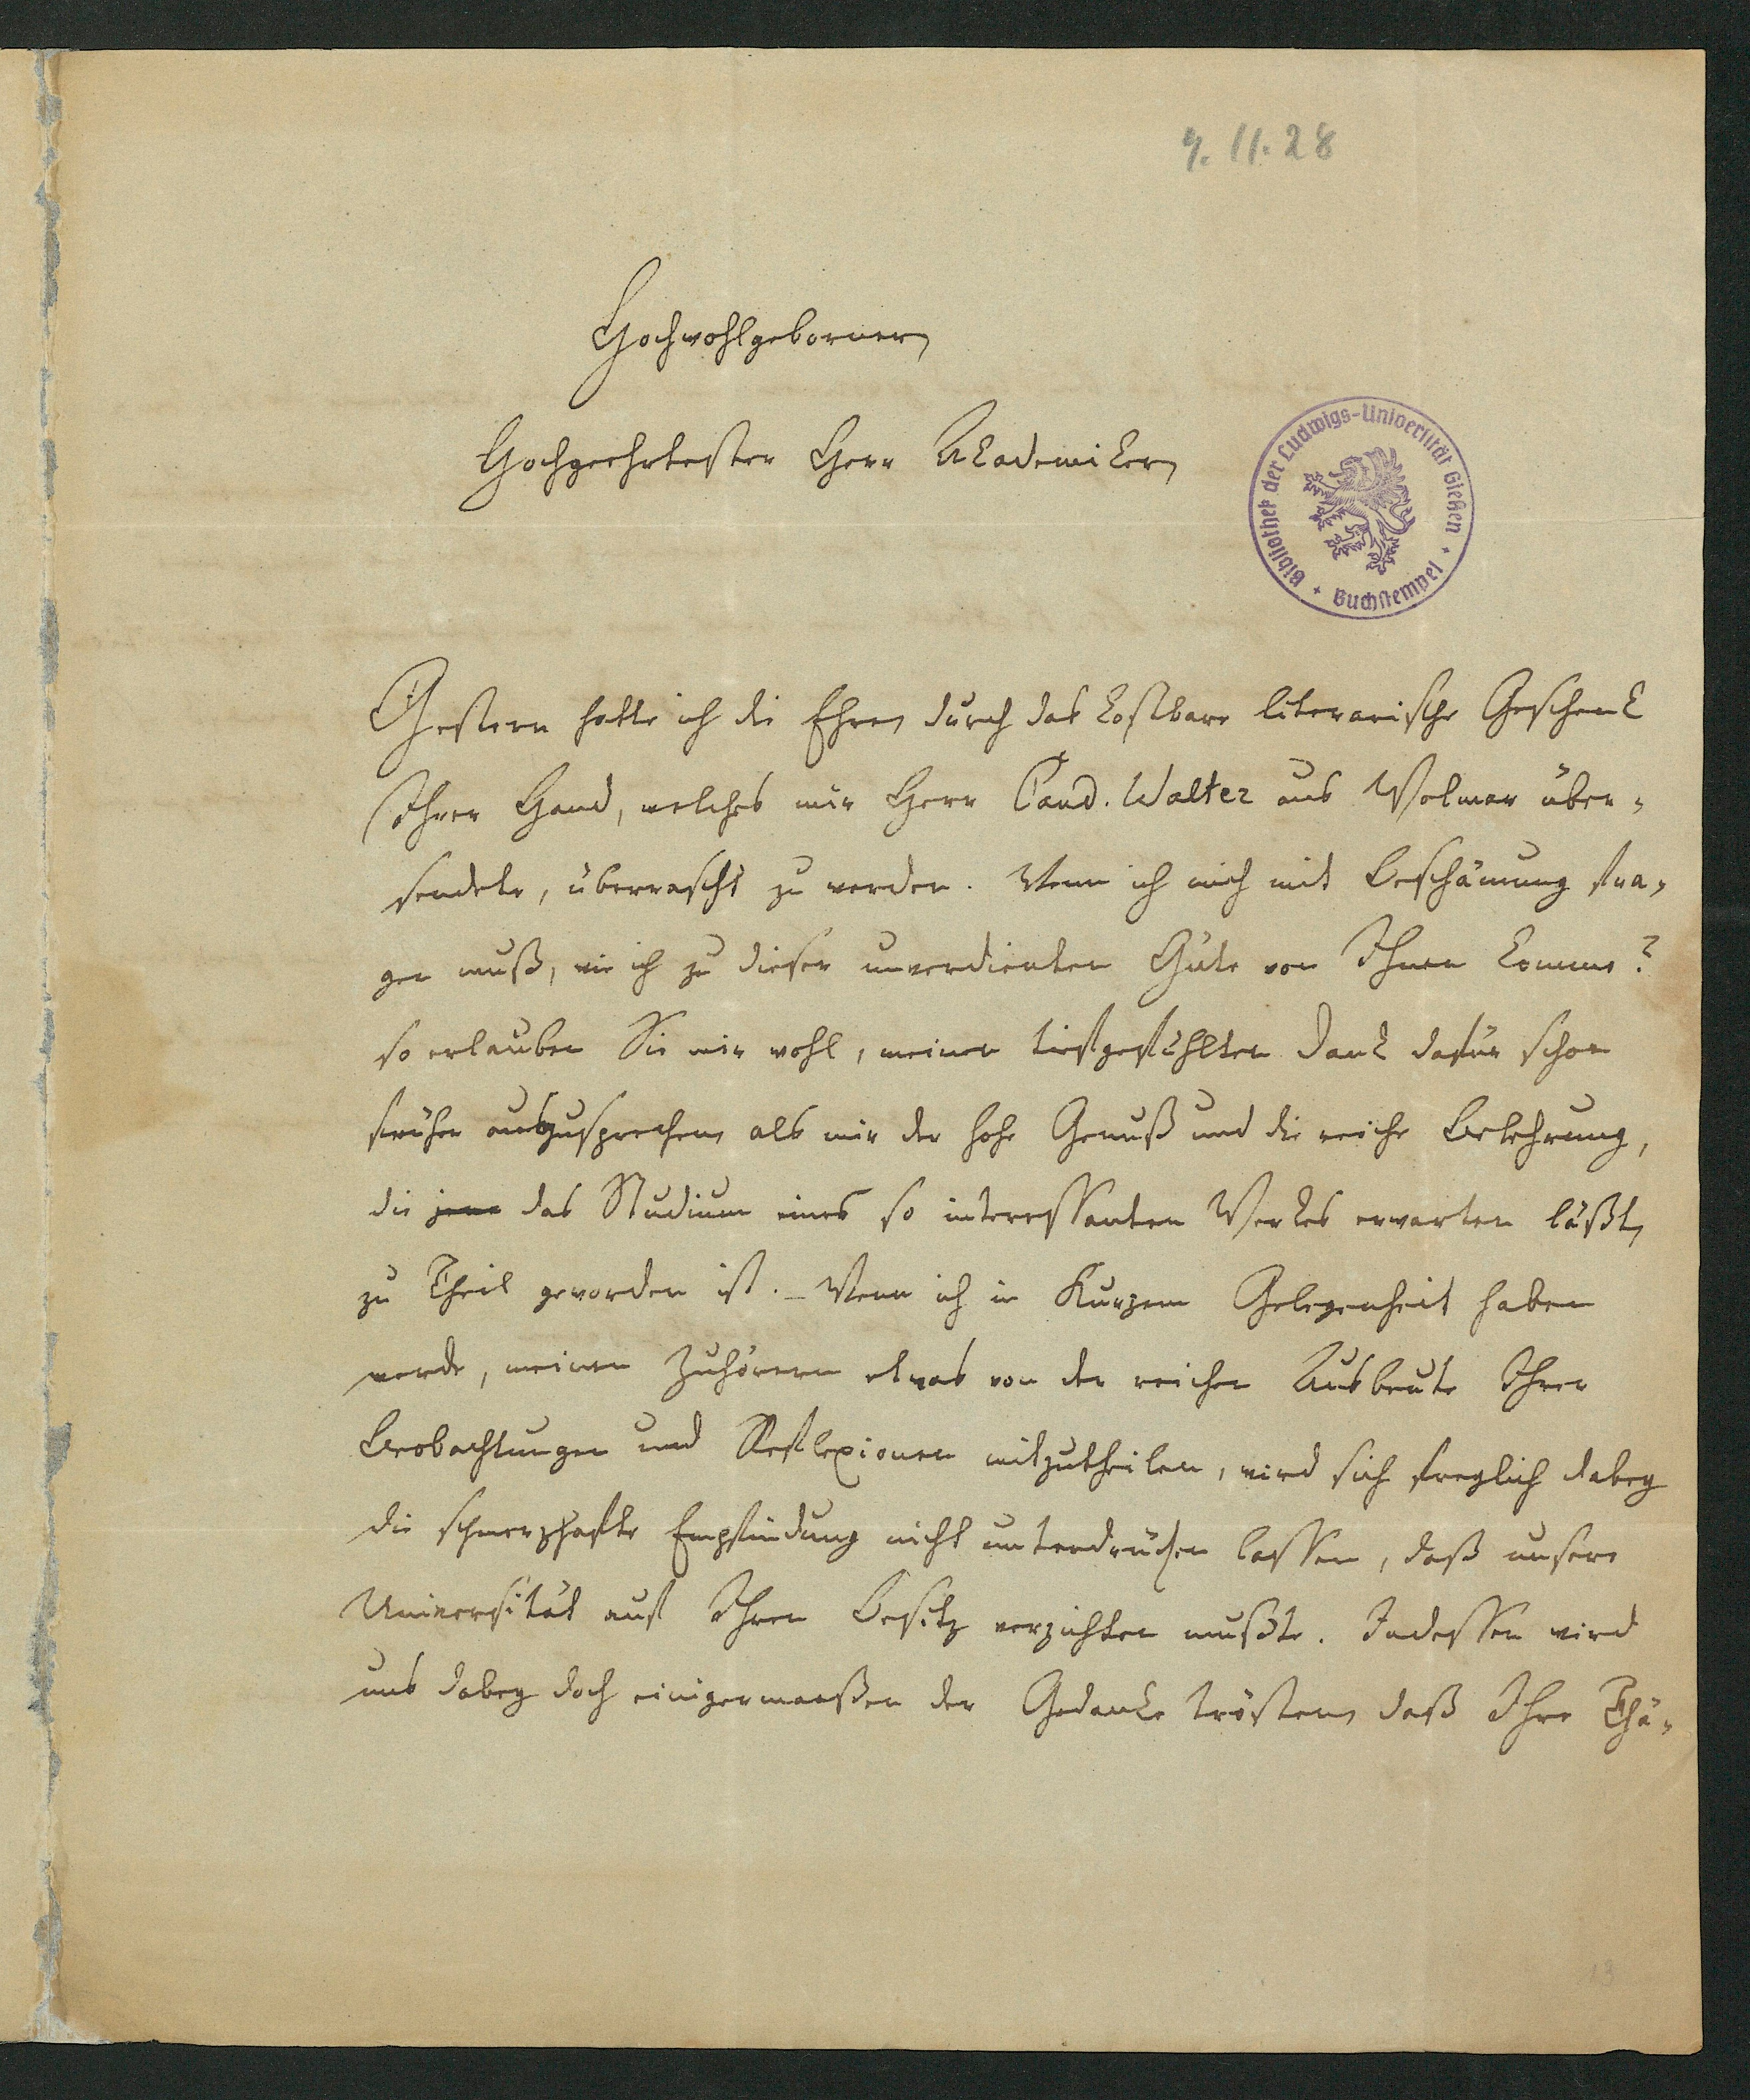 4. 11. 28
Hochwohlgeborner,
Hochgeehrtester Herr Akademiker,
Bibliothek der Ludwigs-Universität Gießen + Buchstempel +
Gestern hatte ich die Ehre, durch das kostbare literarische Geschenk
Ihrer Hand, welches mir Herr Cand. Walter aus Wolmar über-
sendete, überrascht zu werden. Wenn ich mich mit Beschämung fra-
gen muß, wie ich zu dieser unverdienten Güte von Ihnen komme?
so erlauben Sie mir wohl, meinen tiefgefühlten Dank dafür schon
früher auszusprechen, als mir der hohe Genuß und die reiche Belehrung,
die jene das Studium eines so interessanten Werkes erwarten läßt,
zu Theil geworden ist. – Wenn ich in Kurzem Gelegenheit haben
werde, meinen Zuhörern etwas von der reichen Ausbeute Ihrer
Beobachtungen und Reflexionen mitzutheilen, wird sich freylich dabey
die schmerzhafte Empfindung nicht unterdrücken lassen, daß unsere
Universität auf Ihren Besitz verzichten mußte. Indessen wird
uns dabey doch einigermaaßen der Gedanke trösten, daß Ihre Thä-
13